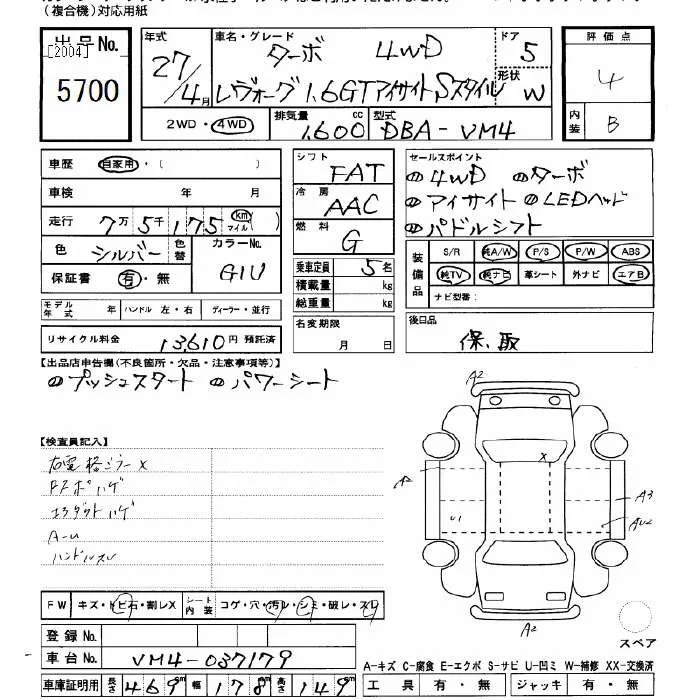 (複合機)対応用紙
出品No.
[2004]
5700
年式 27/4月
車名・グレード ターボ 4WD
レヴォーグ 1.6GTアイサイト Sスタイル
ドア 5
形状 W
2WD・4WD
排気量 1,600 cc
型式 DBA-VM4
評価点
4
内装 B
車歴 自家用・( )
車検 年 月
走行 7万5千175 km マイル( )
色 シルバー 色替 カラーNo. G1U
保証書 有・無
モデル年式 年 ハンドル 左・右 ディーラー・並行
リサイクル料金 13,610円 預託済
シフト FAT
冷房 AAC
燃料 G
乗車定員 5名
積載量 kg
総重量 kg
名変期限
月 日
セールスポイント
4WD ターボ
アイサイト LEDヘッド
パドルシフト
装備品 S/R 純A/W P/S P/W ABS
純TV 純ナビ 革シート 外ナビ エアB
ナビ型番:
後日品
保、取
【出品店申告欄(不良箇所・欠品・注意事項等)】
プッシュスタート パワーシート
【検査員記入】
右電格ミラーX
ハゲ
ハゲ
A-U
ハンドルスレ
A2
A2
A3
U1
X
A2
FW キズ・トビ石・割レX シート内装 コゲ・穴・汚レ・シミ・破レ・スレ
登録No.
車台No. VM4-037179
車庫証明用 長さ 469cm 幅 178cm 高さ 149cm
スペア
A-キズ C-腐食 E-エクボ S-サビ U-凹ミ W-補修 XX-交換済
工具 有・無 ジャッキ 有・無